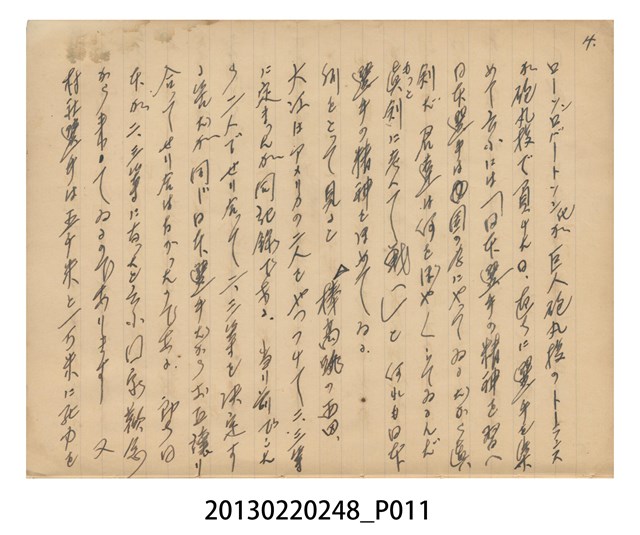 4.
ローソン ロバートソン氏が巨人砲丸投のトーランス
が砲丸投で負けた日、直ちに選手を集
めて云ふには「日本選手の精神を習へ
日本選手は国の為にやってゐるだから真
剣だ 君達は何をぼやぼやしてゐるんだ
もっと真剣に考へて戦へ」と 何れも日本
選手の精神をほめてゐる。
例をとって見ると 棒高跳の西田、
大江はアメリカの二人をやっつけて二、三等
に定まったが同記録である。当り前ならこれ
から二人でせり合って二、三等を決定す
る筈だが同じ日本選手だからお互譲り
合ってせり合はなかったのである。
本が二、三等になったと云ふ
から来てゐるのであります 又
村社選手は五千米と一万米に死力を
20130220248_P011